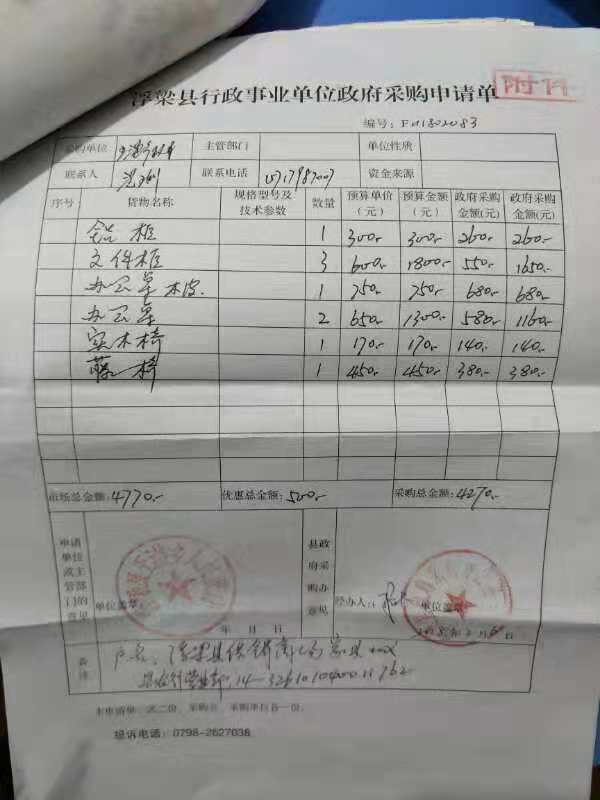 附件
浮梁县行政事业单位政府采购申请单
编号: F01802083
采购单位 主管部门 单位性质
联系人 联系电话 资金来源
序号 货物名称 规格型号及技术参数 数量 预算单价(元) 预算金额(元) 政府采购金额(元) 政府采购金额(元)
柜 1 300.- 300.- 260.- 260.-
文件柜 3 600.- 1800.- 550.- 1650.-
办公桌 木皮 1 750.- 750.- 680.- 680.-
办公桌 2 650.- 1300.- 580.- 1160.-
实木椅 1 170.- 170.- 140.- 140.-
藤椅 1 450.- 450.- 380.- 380.-
市场总金额: 4770.- 优惠总金额: 500.- 采购总金额: 4270.-
申请单位或主管部门的意见 单位盖章: 年 月 日
县政府采购办意见 经办人: 单位盖章:
备注 户名: 浮梁县
14-326101040011762
本申请单一式二份,采购办、采购单位各一份。
投诉电话: 0798-2627038